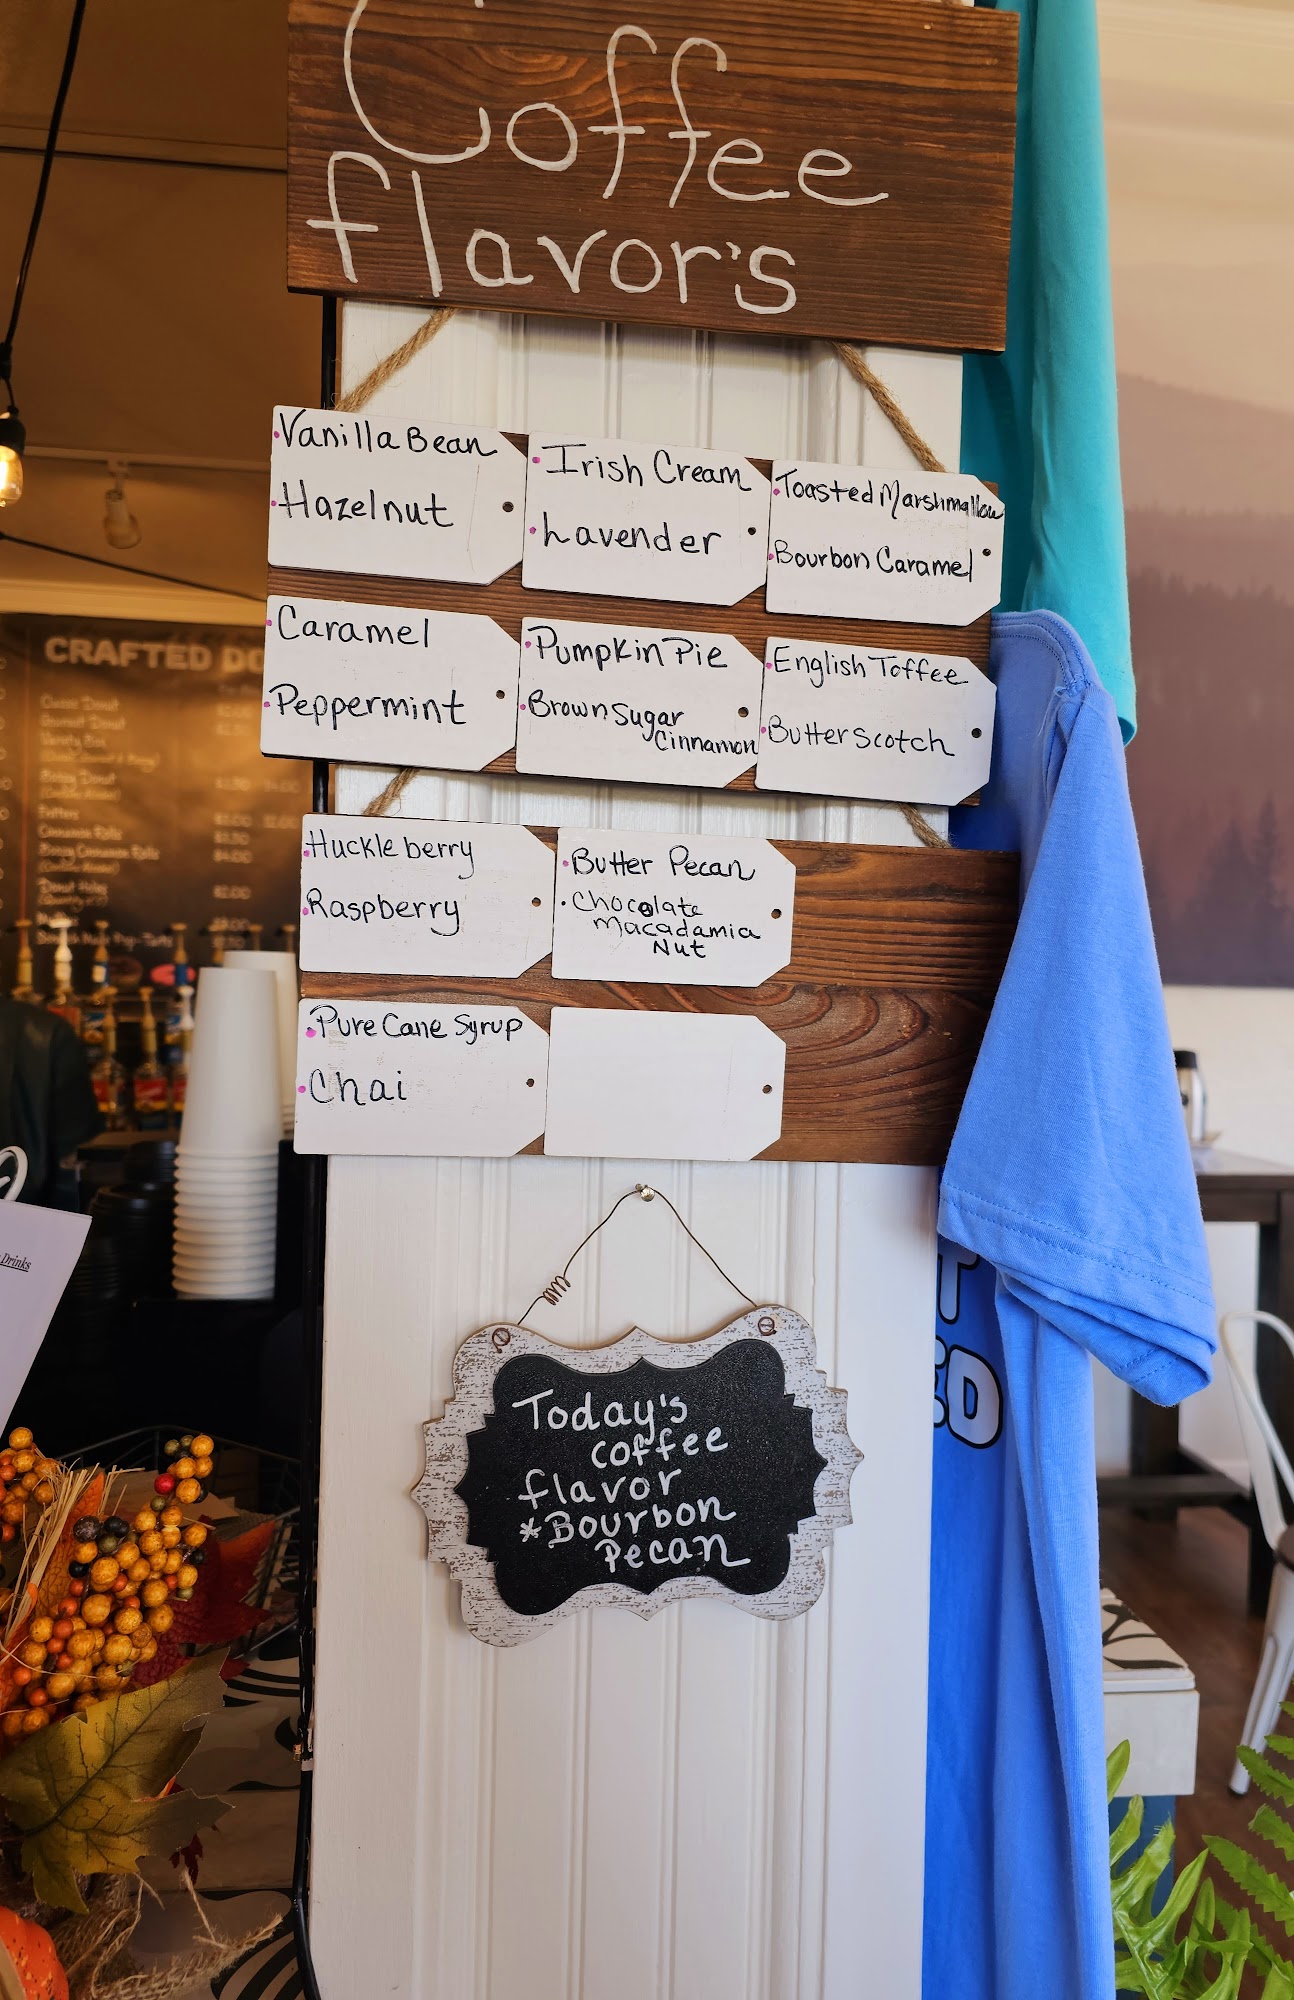 Coffee
flavor's
Vanilla Bean
Hazelnut
Irish Cream
Lavender
Toasted Marshmallow
Bourbon Caramel
Caramel
Peppermint
Pumpkin Pie
Brown Sugar
Cinnamon
English Toffee
Butterscotch
Huckleberry
Raspberry
Butter Pecan
Chocolate
Macadamia
Nut
Pure Cane Syrup
Chai
Today's
coffee
flavor
*Bourbon
Pecan
CRAFTED DO
Drinks